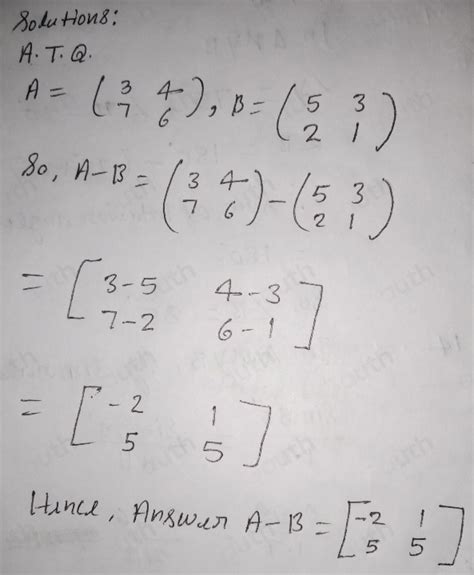 Solutions:
A.T.Q.
A = (3 4
7 6), B = (5 3
2 1)
So, A-B = (3 4
7 6) - (5 3
2 1)
= [3-5 4-3
7-2 6-1]
= [-2 1
5 5]
Hence, Answer A-B = [-2 1
5 5]